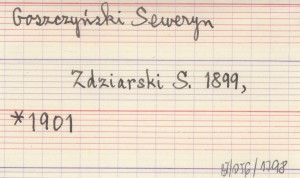 Goszczyński Seweryn
Zdziarski S. 1899,
*1901